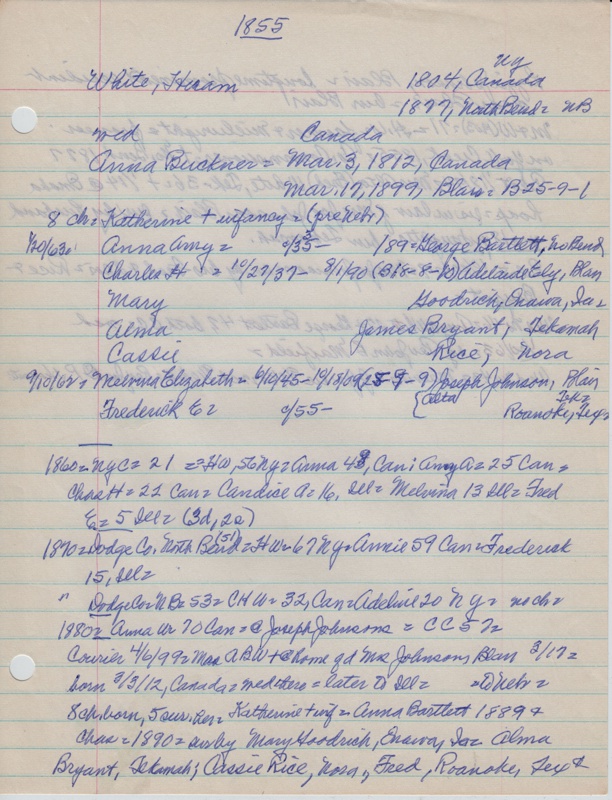 1855
NY
White, Hiram 1804, Canada
1877, North Bend = NB
med Canada
Anna Buckner = Mar. 3, 1812, Canada
Mar. 17, 1899, Blair = B25-9-1
8 ch = Katherine + infancy = (preNebr)
1/20/63 = Anna Amy = c/35 /89 = George Bartlett, No Bend
Charles H = 10/27/37 - 8/1/90 (B18-8-10) Adelaide Ely, Blair
Mary Goodrich, Onawa, Ia =
Alma James Bryant, Tekamah
Cassie Rice, Nora
9/10/62 = Melvina Elizabeth = 6/10/45 - (25-9-9) Joseph Johnson, Blair
Frederick E = c/55 - Roanoke, Tex =
1860 = NYC = 21 = HW, 56 NY = Anna 48, Can; Amy A = 25 Can =
Chas H = 22 Can = Candice A = 16, Ill = Melvina 13 Ill = Fred
E = 5 Ill = (3d, 2s)
1870 = Dodge Co, North Bend (51) = HW = 67 NY = Annie 59 Can = Frederick
15, Ill =
" Dodge Co = NB = 53 = CHW = 32, Can = Adeline 20 NY = no ch =
1880 = Anna W 70 Can = @ Joseph Johnsons = CC 57 =
Courier 4/6/99 = Mrs ABW + @ home of d Mrs Johnson, Blair 3/17 =
born 3/3/12, Canada = med there = later to Ill = = to Nebr =
8 ch born, 5 sur. her = Katherine + inf = Anna Bartlett 1889 +
Chas = 1890 = sur by Mary Goodrich, Onawa, Ia = Alma
Bryant, Tekamah; Cassie Rice, Nora, Fred, Roanoke, Tex +